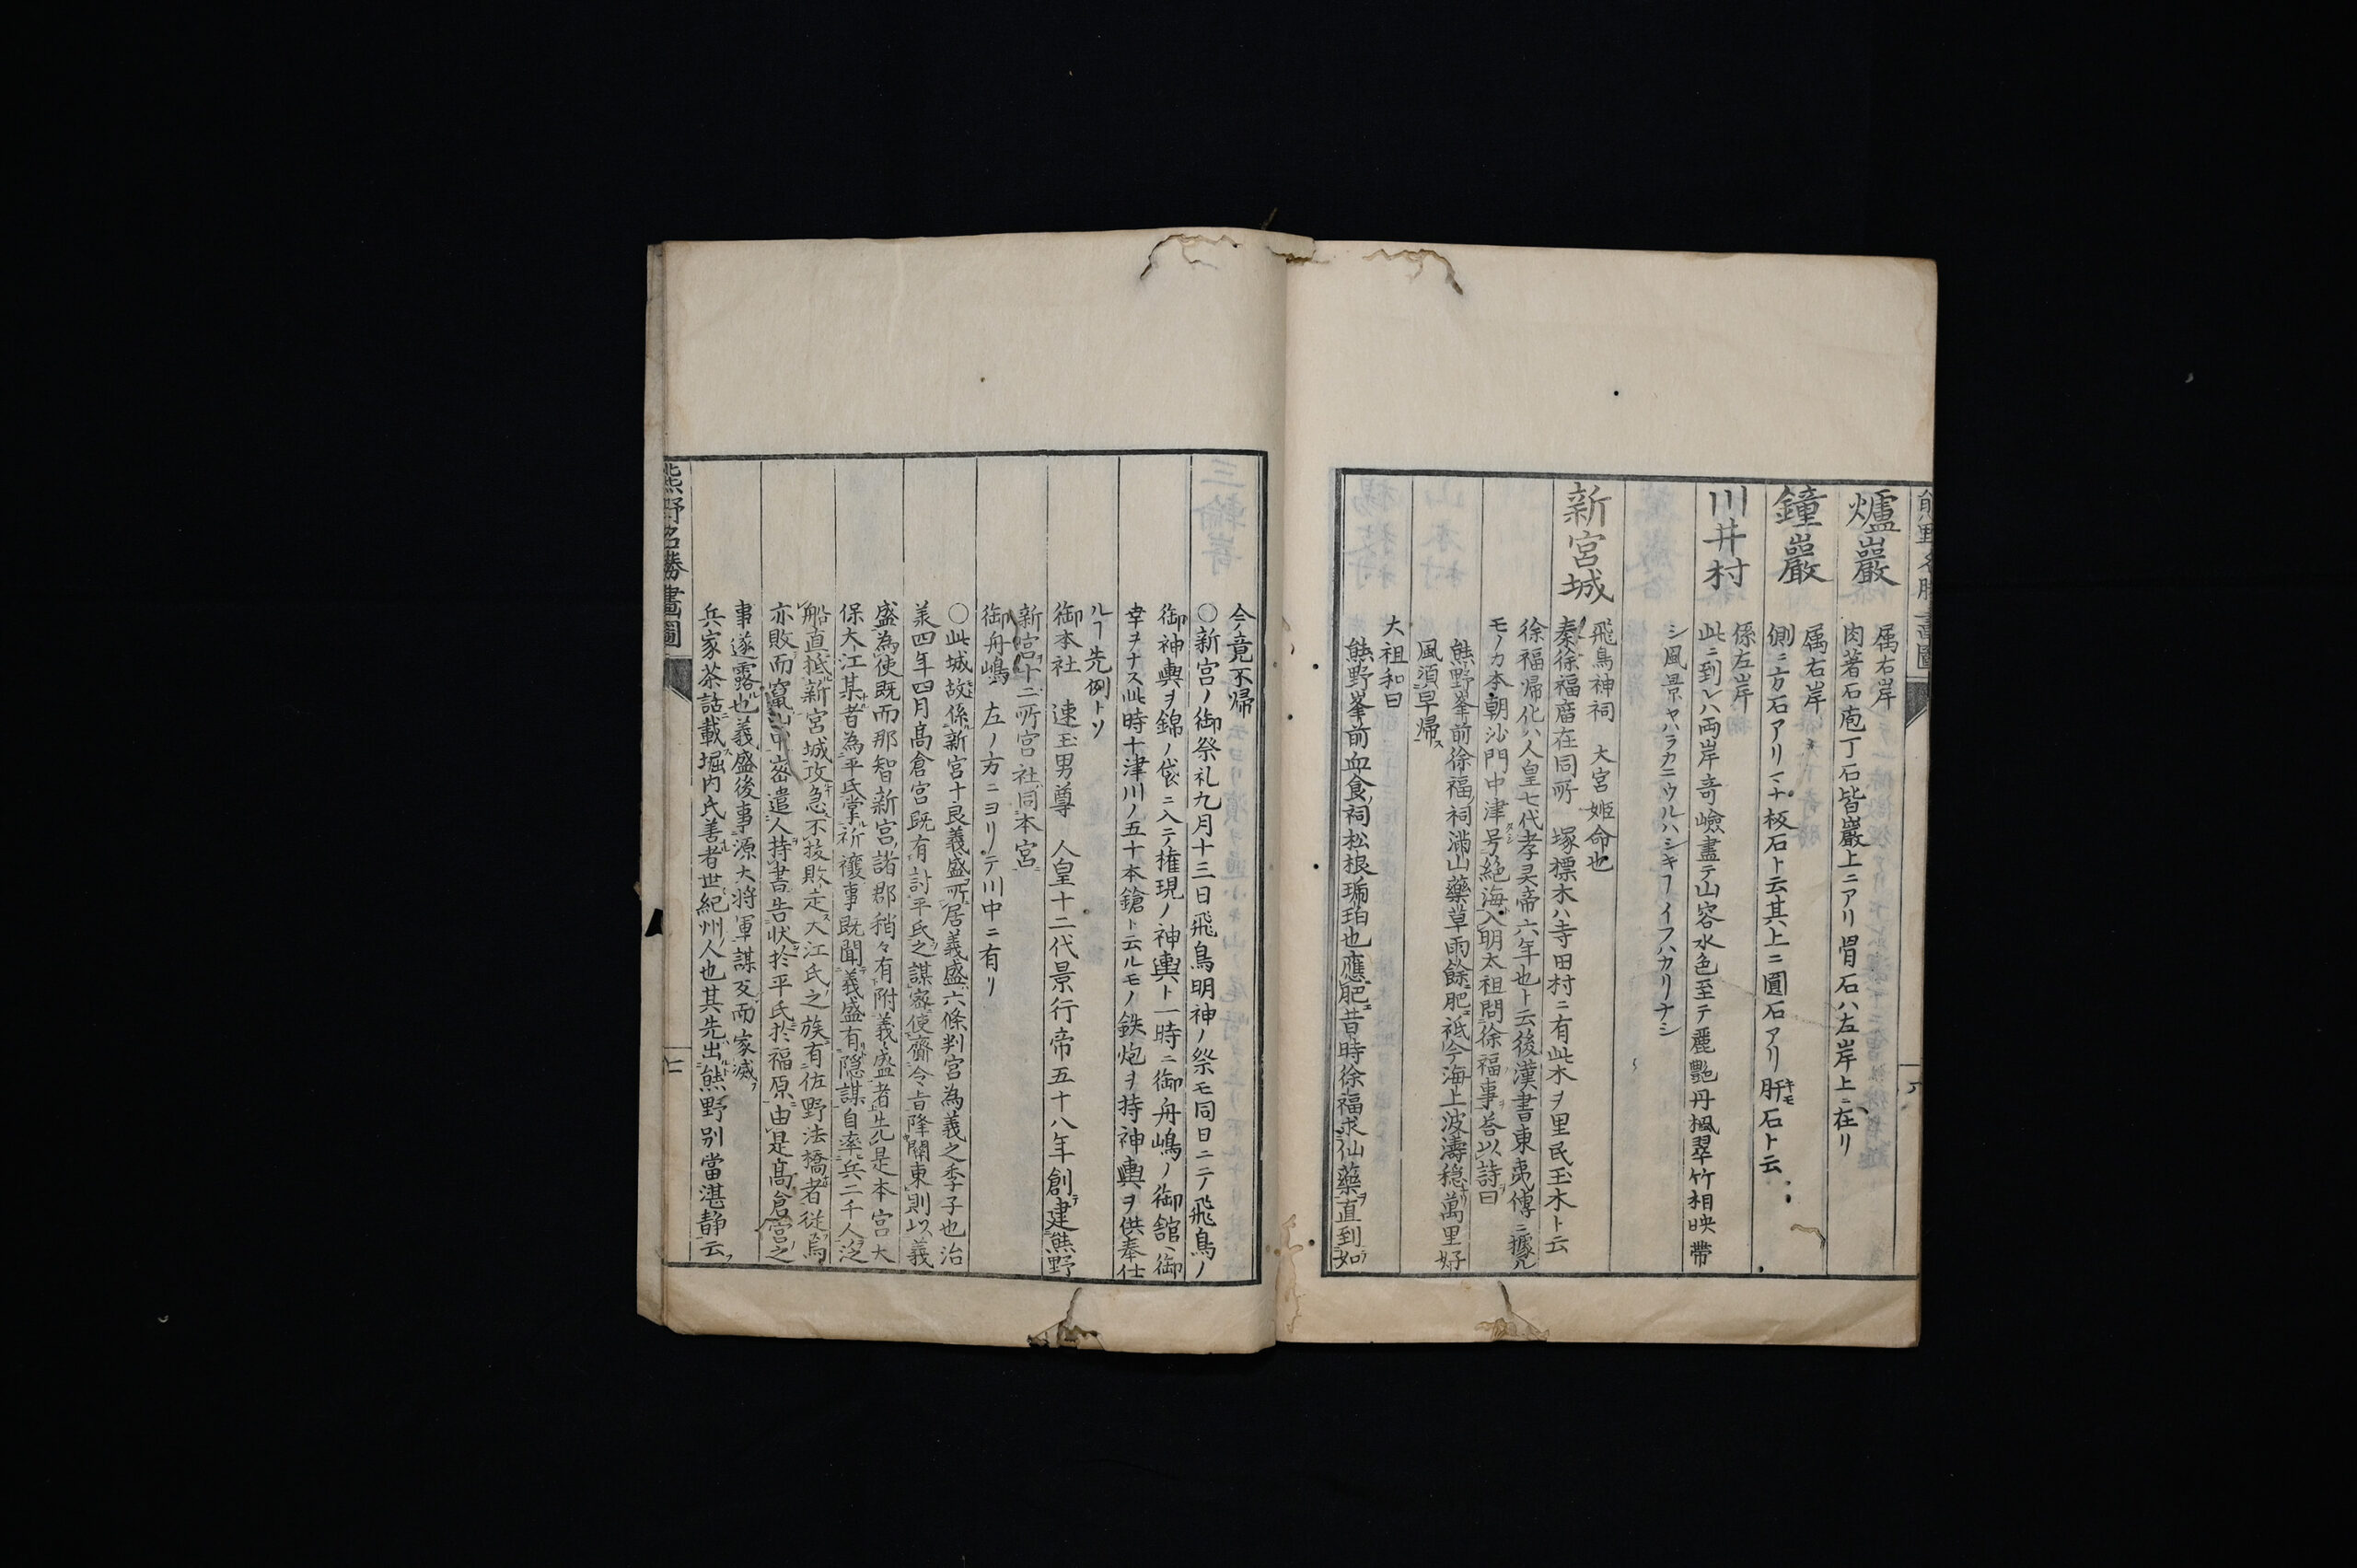 熊野名勝畫圖
爐巖
属右岸
肉著石庖丁石皆巖上ニアリ胃石ハ左岸上ニ在リ
鐘巖
属右岸
側ニ方石アリマナ板石ト云其上ニ圓石アリ肝石ト云
川井村
係左岸
此ニ到レハ両岸奇嶮盡テ山容水色至テ麗艷丹楓翠竹相映帶
シ風景ヤハラカニウルハシキヿイフハカリナシ
新宮城
飛鳥神祠 大宮姫命也
秦徐福庿在同所 塚標木ハ寺田村ニ有此木ヲ里民玉木ト云
徐福帰化ハ人皇七代孝灵帝六年也ト云後漢書東夷傳ニ據ル
モノカ本朝沙門中津号絶海入明太祖問徐福事答以詩曰
熊野峯前徐福祠満山藥草雨餘肥祗今海上波濤穏萬里好
風須早帰
大祖和曰
熊野峯前血食祠松根琥珀也應肥昔時徐福求仙藥直到如
今竟不帰
〇新宮ノ御祭礼九月十三日飛鳥明神ノ祭モ同日ニテ飛鳥ノ
御神輿ヲ錦ノ袋ニ入テ権現ノ神輿ト一時ニ御舟嶋ノ御舘ヘ御
幸ヲナス此時十津川ノ五十本鎗ト云ルモノ鉄炮ヲ持神輿ヲ供奉仕
ルヿ先例トソ
御本社 速玉男尊 人皇十二代景行帝五十八年創建熊野
新宮十二所宮社同本宮
御舟嶋 左ノ方ニヨリテ川中ニ有リ
〇此城故係新宮十良義盛所居義盛六條判官為義之季子也治
羙四年四月髙倉宮既有討平氏之謀密使齎令旨降關東則以義
盛為使既而那智新宮諸郡稍々有附義盛者先是本宮大
保大江某者為平氏掌祈禳事既聞義盛有隠謀自率兵二千人泛
船直抵新宮城攻急不抜敗走大江氏之族有佐野法橋者従焉
亦敗而竄山中密遣人持書告状於平氏於福原由是髙倉宮之
事遂露也義盛後事源大将軍謀反而家滅
兵家茶話載堀内氏善者世紀州人也其先出熊野別當湛静云
熊野名勝畫圖
七